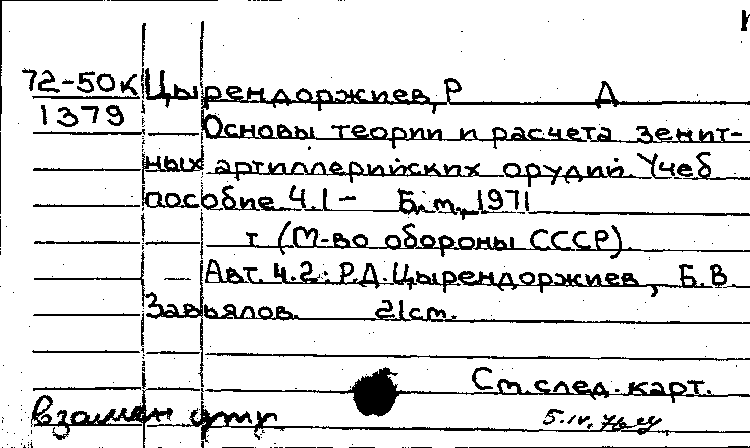 72-50к Цырендоржиев, Р Д
1379 Основы теории и расчета зенит-
ных артиллерийских орудий. Учеб
пособие. Ч.1 - Б.м., 1971
т (М-во обороны СССР).
Авт. ч.2: Р.Д. Цырендоржиев, Б.В.
Завьялов. 21см.
См. след. карт.
взамен
5.IV.76